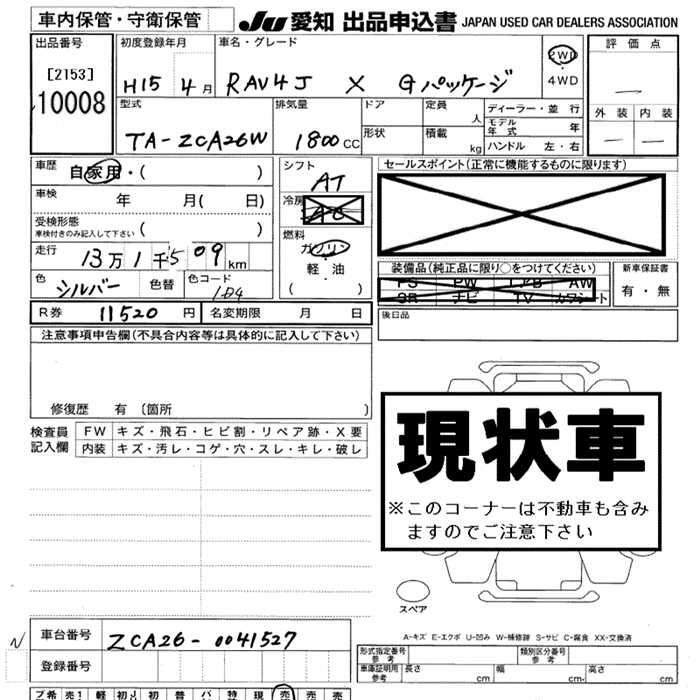 車内保管・守衛保管
JU 愛知 出品申込書 JAPAN USED CAR DEALERS ASSOCIATION
出品番号
[2153]
10008
初度登録年月
H15 4月
車名・グレード
RAV4J X Gパッケージ
2WD
4WD
評価点
外装 内装
型式
TA-ZCA26W
排気量
1800cc
ドア
形状
定員
人
積載
kg
ディーラー・並行
モデル年式 年
ハンドル 左・右
車歴
自家用・( )
車検
年 月( 日)
受検形態
車検付きのみ記入して下さい ( )
走行
13万1千509km
色
シルバー
色替
色コード
1D4
シフト
AT
冷房
AC
燃料
ガソリン
軽・油
( )
セールスポイント(正常に機能するものに限ります)
装備品(純正品に限り○をつけてください)
PS PW エアB AW
SR ナビ TV カワシート
新車保証書
有・無
後日品
R券 11520円
名変期限 月 日
注意事項申告欄(不具合内容等は具体的に記入して下さい)
修復歴 有 (箇所 )
検査員記入欄
FW キズ・飛石・ヒビ割・リペア跡・X要
内装 キズ・汚レ・コゲ・穴・スレ・キレ・破レ
現状車
※このコーナーは不動車も含み
ますのでご注意下さい
スペア
A-キズ E-エクボ U-凹み W-補修跡 S-サビ C-腐食 XX-交換済
N
車台番号 ZCA26-0041527
登録番号
形式指定番号
参考
類別区分番号
参考
車庫証明用
参考
長さ cm
幅 cm
高さ cm